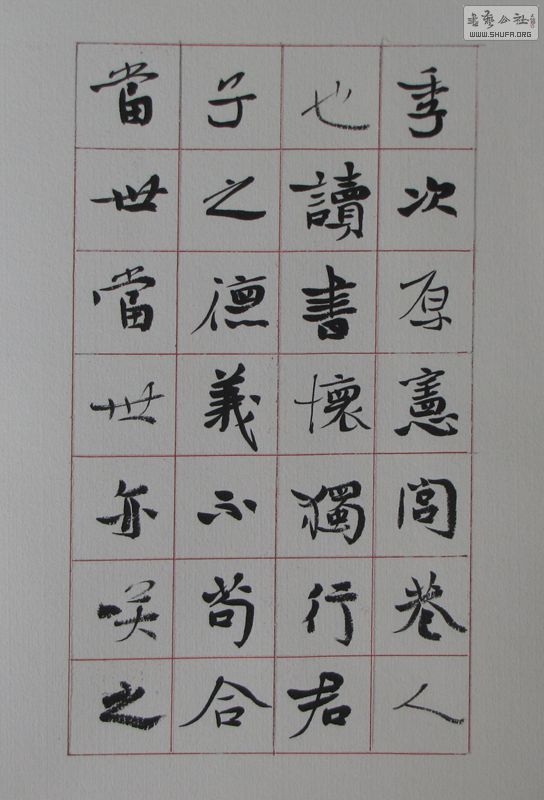 季次原憲閭巷人
也讀書懷獨行君
子之德義不苟合
當世當世亦笑之
書藝公社
WWW.SHUFA.ORG